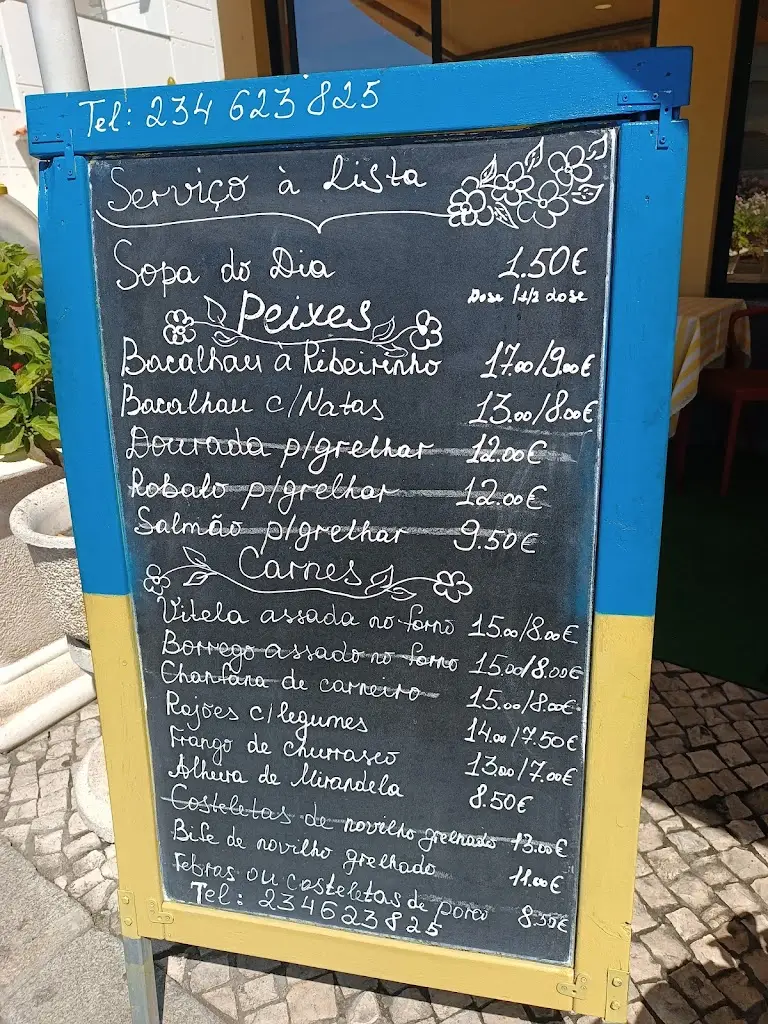 Tel: 234 623 825
Serviço à Lista
Sopa do Dia 1.50€
Dose /1/2 dose
Peixes
Bacalhau à Ribeirinho 17.00/9.00€
Bacalhau c/Natas 13.00/8.00€
Dourada p/grelhar 12.00€
Robalo p/grelhar 12.00€
Salmão p/grelhar 9.50€
Carnes
Vitela assada no forno 15.00/8.00€
Borrego assado no forno 15.00/8.00€
Chanfana de carneiro 15.00/8.00€
Rojões c/legumes 14.00/7.50€
Frango de churrasco 13.00/7.00€
Alheira de Mirandela 8.50€
Costeletas de novilho grelhado 13.00€
Bife de novilho grelhado 11.00€
Febras ou costeletas de porco 8.50€
Tel: 234623825